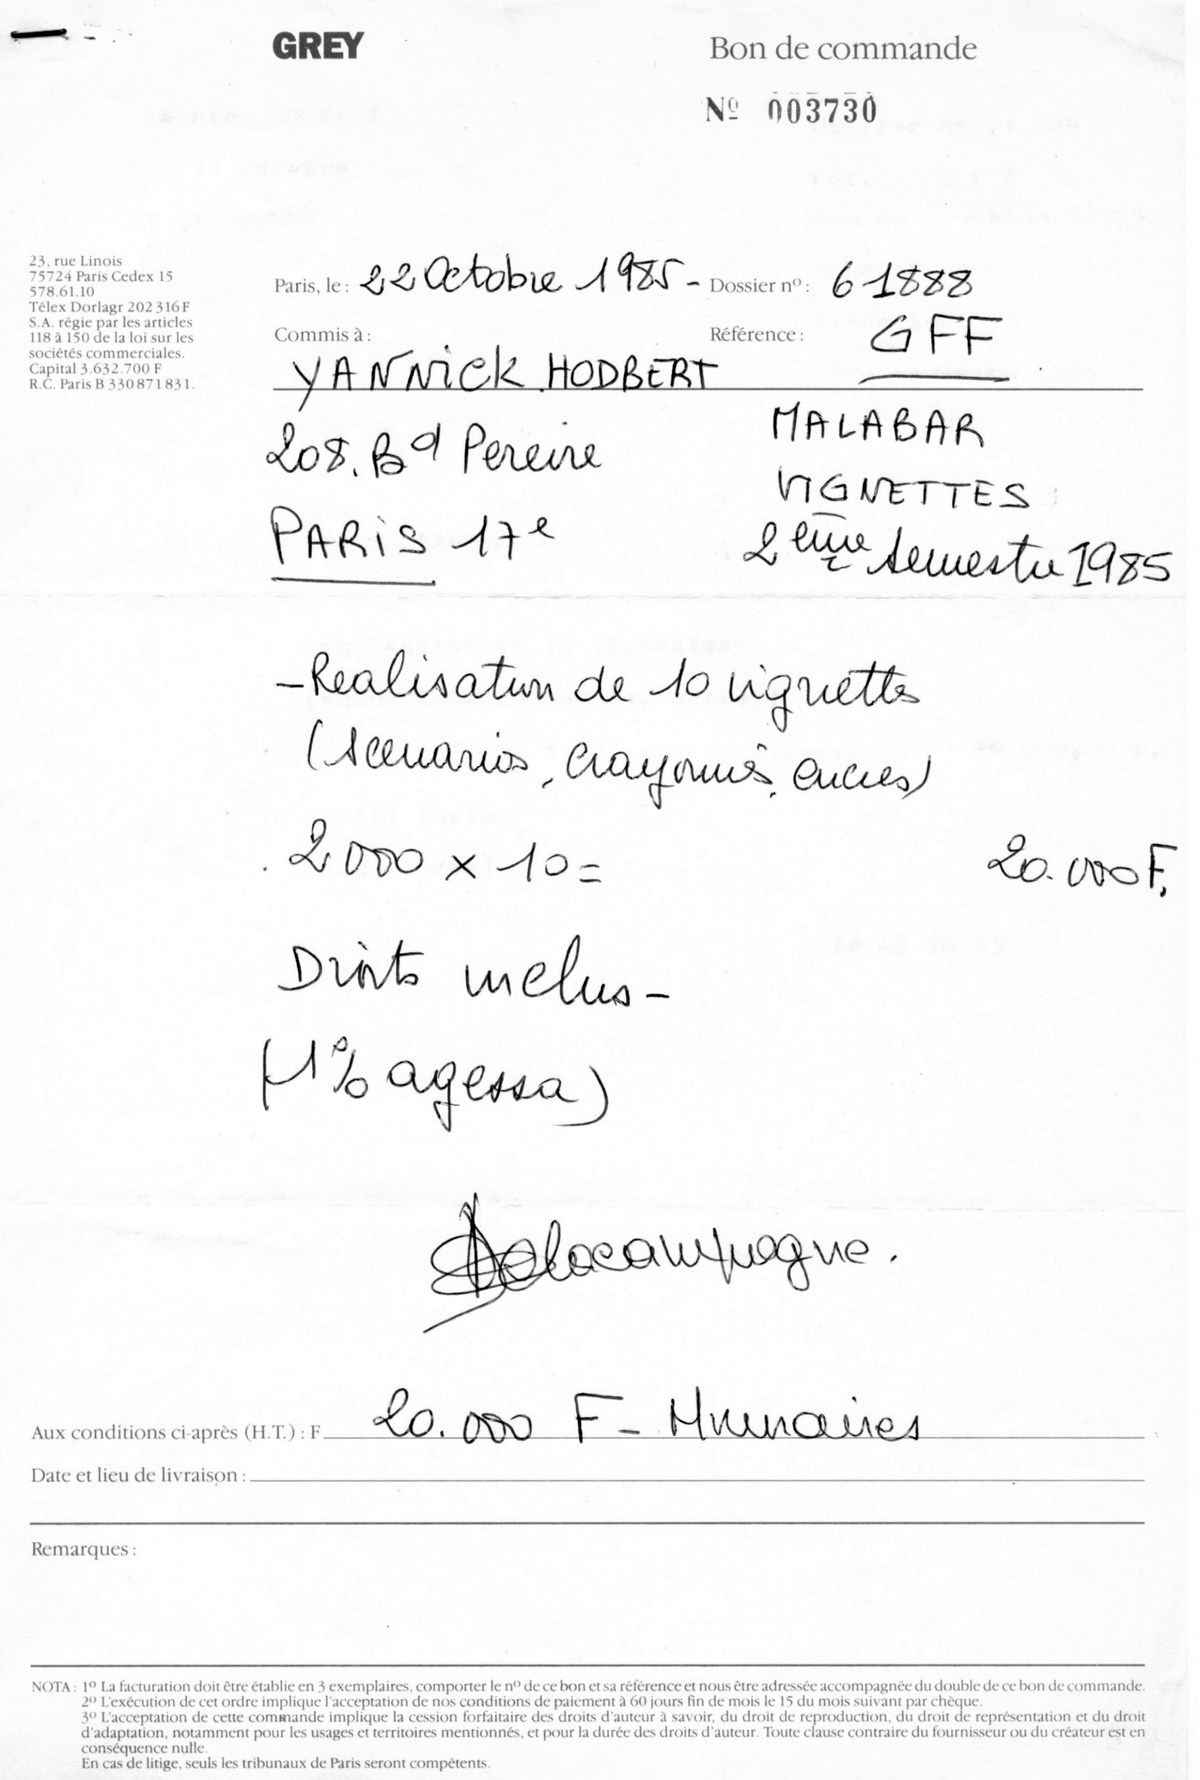 GREY
Bon de commande
Nº 003730
23, rue Linois
75724 Paris Cedex 15
578.61.10
Télex Dorlagr 202 316 F
S.A. régie par les articles
118 à 150 de la loi sur les
sociétés commerciales.
Capital 3.632.700 F
R.C. Paris B 330 871 831.
Paris, le : 22 Octobre 1985 - Dossier nº : 61888
Commis à : Référence : GFF
YANNICK HODBERT
208. Bd Pereire
PARIS 17e
MALABAR
VIGNETTES
2ème semestre 1985
- Realisation de 10 vignettes
(scenarios, crayonnés, encres)
2000 x 10 = 20.000 F,
Droits inclus -
(1% agessa)
Delacampagne.
Aux conditions ci-après (H.T.) : F 20.000 F - Honoraires
Date et lieu de livraison :
Remarques :
NOTA : 1º La facturation doit être établie en 3 exemplaires, comporter le nº de ce bon et sa référence et nous être adressée accompagnée du double de ce bon de commande.
2º L'exécution de cet ordre implique l'acceptation de nos conditions de paiement à 60 jours fin de mois le 15 du mois suivant par chèque.
3º L'acceptation de cette commande implique la cession forfaitaire des droits d'auteur à savoir, du droit de reproduction, du droit de représentation et du droit
d'adaptation, notamment pour les usages et territoires mentionnés, et pour la durée des droits d'auteur. Toute clause contraire du fournisseur ou du créateur est en
conséquence nulle.
En cas de litige, seuls les tribunaux de Paris seront compétents.